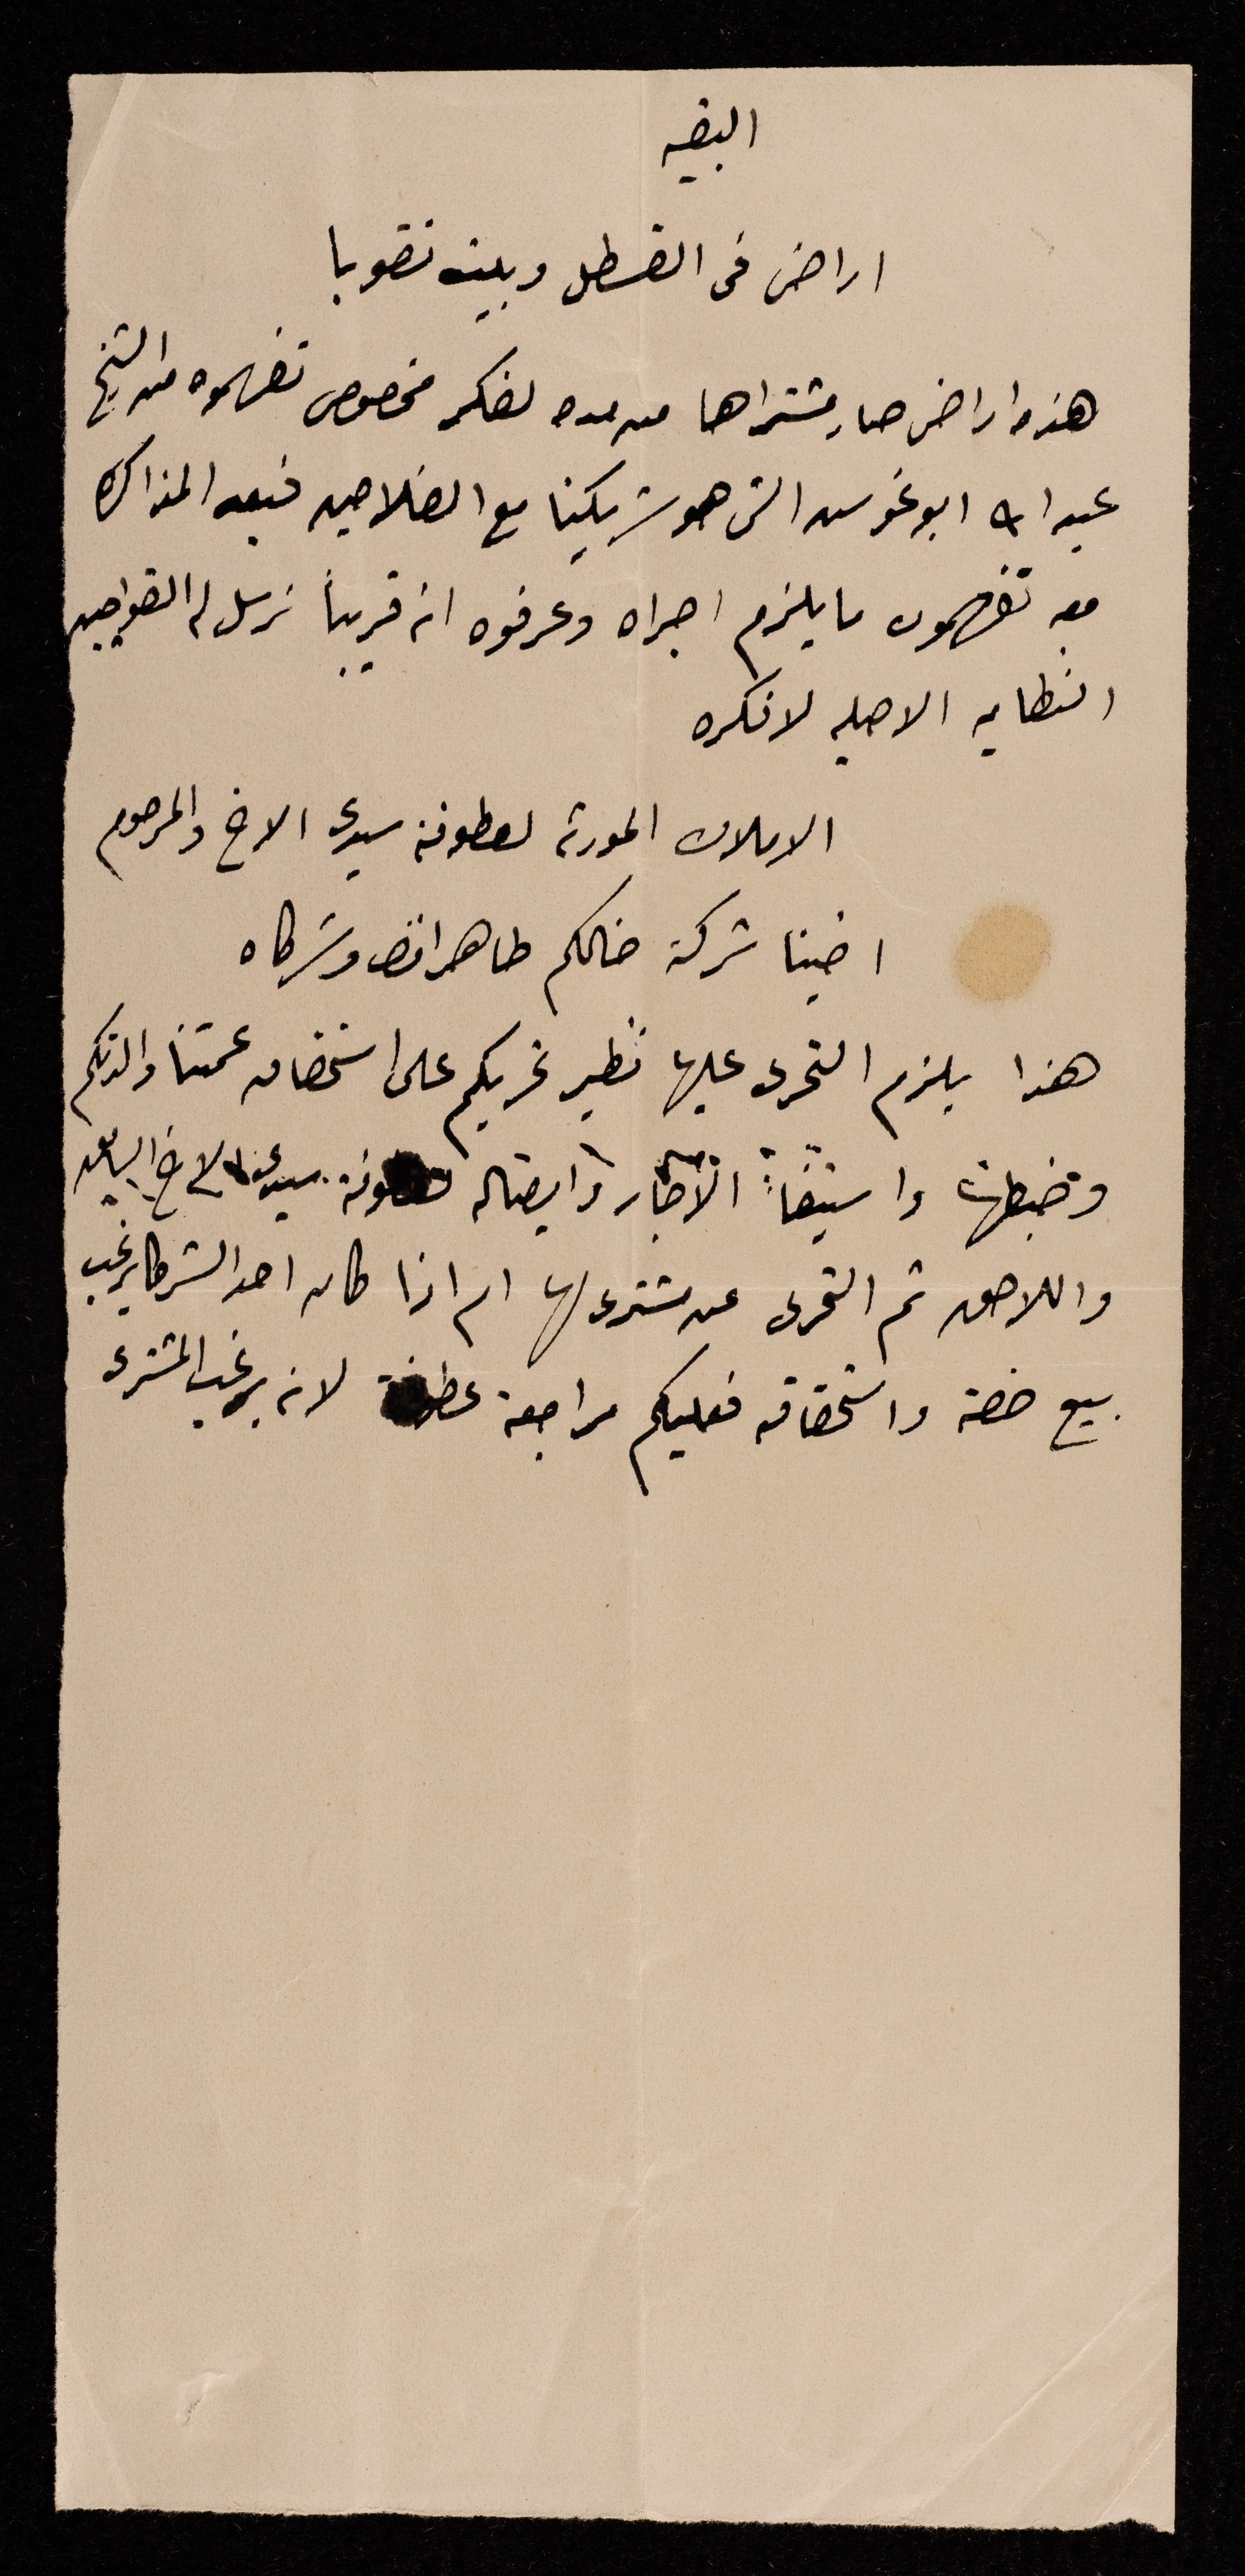 البقيه
اراضى فى القسطل وبيت نقوبا
هذه اراضى صار مشتراها من مده لفكر مخصوص تفهموه من الشيخ
عبد الله ابو غوش الذى هو شريكنا مع الفلاحين فبعد المذاكره
معه تفهمون ما يلزم اجراه وعرفوه انه قريباً نرسل له القواجين
النظاميه الاصليه لافكره
الاملاك المورثه لعطوفة سيدى الاخ والمرحوم
اخينا شركة خالكم طاهر افندى وشركاه
هذا يلزم التحرى عليها نظير تحريكم على استحقاق عمتنا والدتكم
وضبطها واستيفاً الاجار وايصاله لعطوفة سيدى الاخ السابق
واللاحق ثم التحرى عن مشترى لها ام اذا كان احد الشركا يرغب
بيع حصته واستحقاقه فعليكم مراجعة عطوفته لانه يرغب المشترى